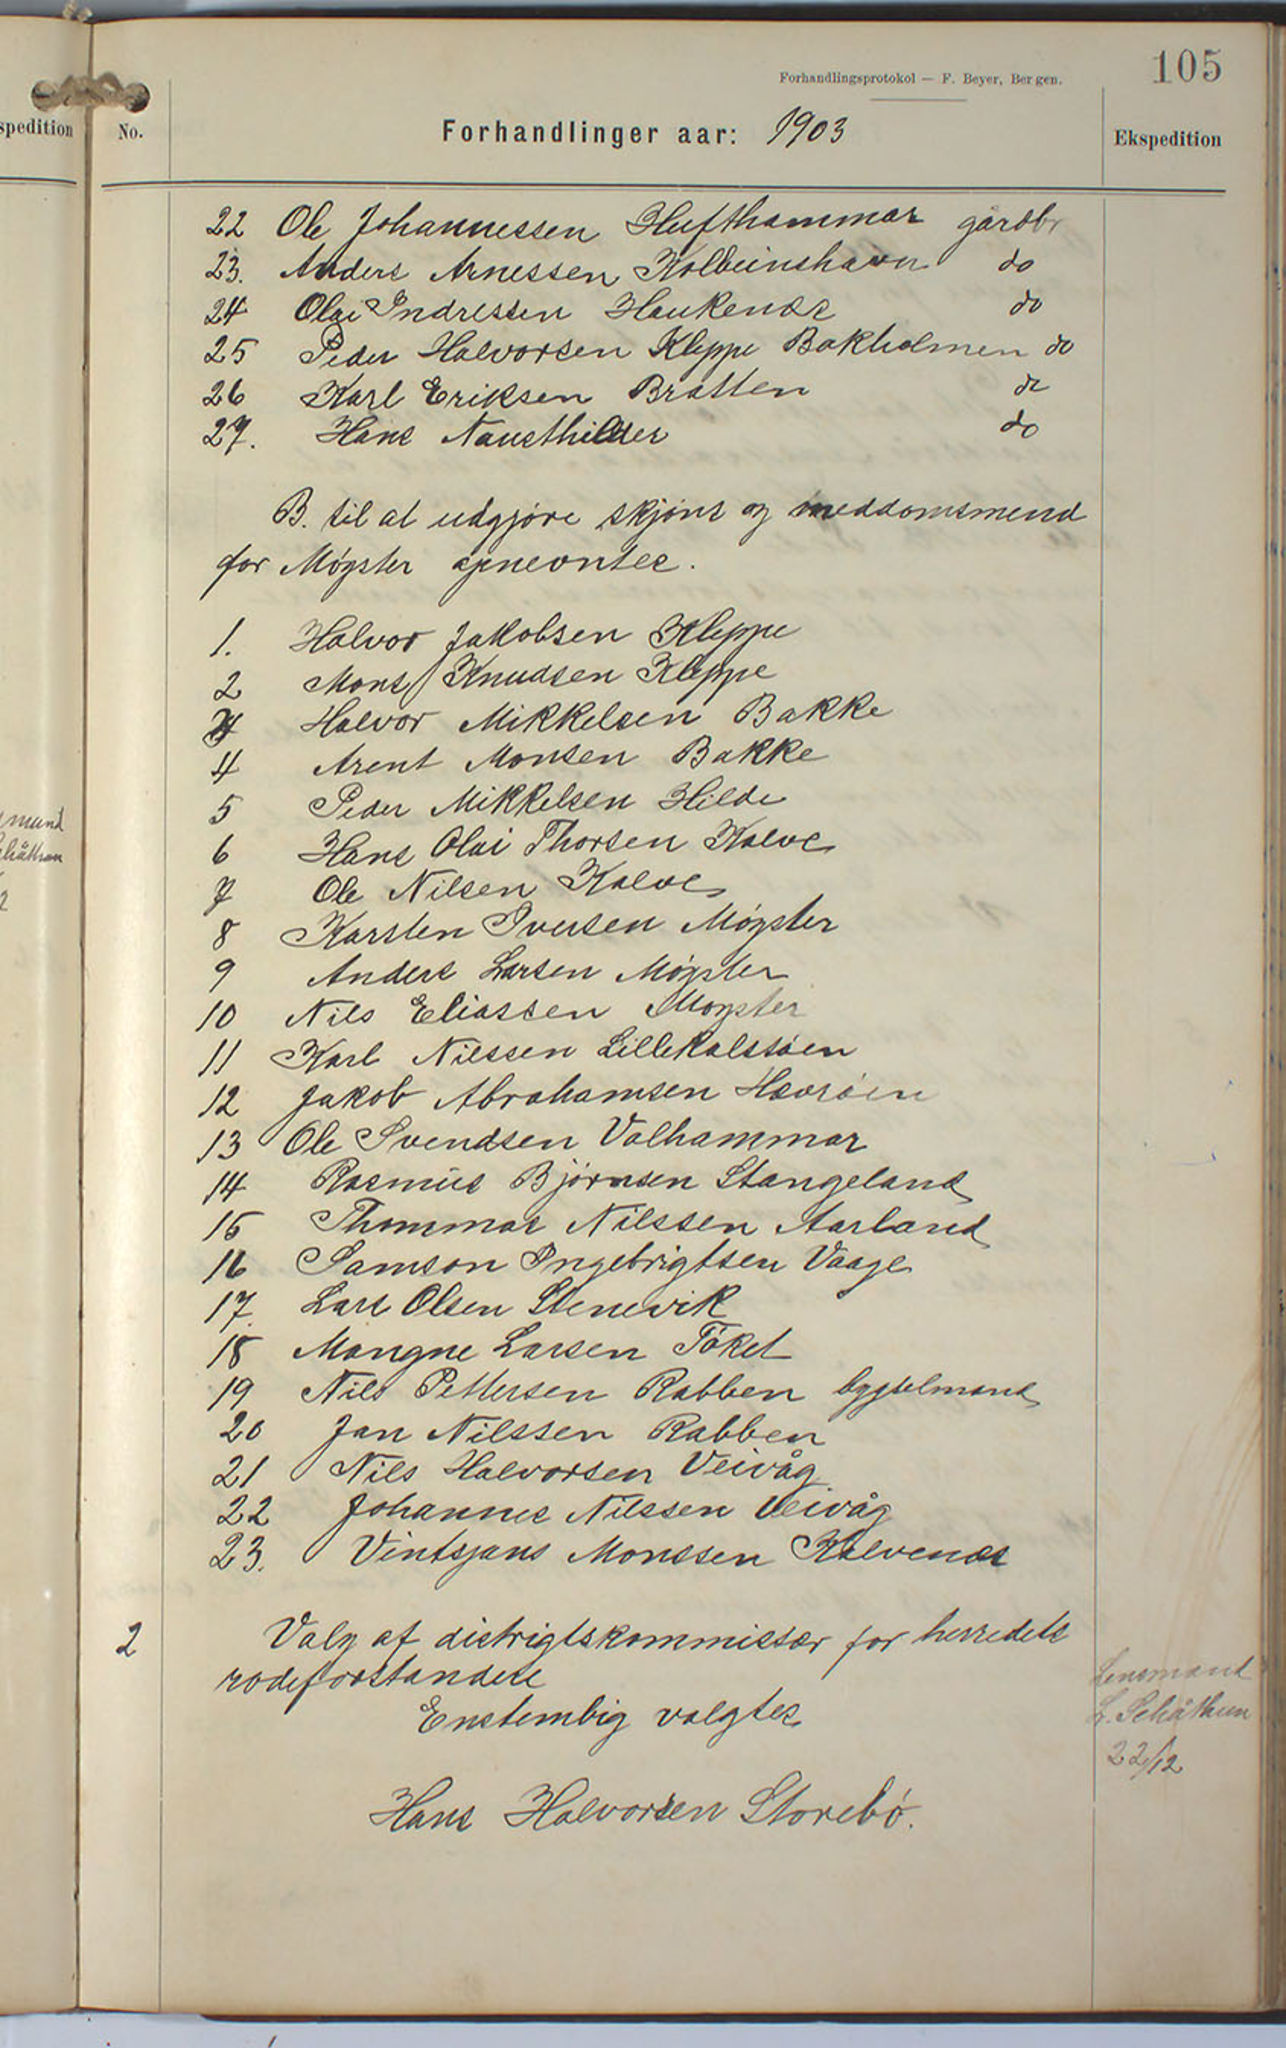 105
Forhandlingsprotokol — F. Beyer, Bergen.
spedition
No.
Forhandlinger aar: 1903
Ekspedition
22 Ole Johannessen Hufthammar gårdbr
23. Anders Arnessen Kolbeinshavn do
24 Olai Indressen Haukenæs do
25 Peder Halvorsen Kleppe Bakholmen do
26 Karl Eriksen Bratten do
27. Hans Nausthilder do
B. til at udgjøre skjøns og meddomsmend
for Møgster
1. Halvor Jakobsen Kleppe
2 Mons Knudsen Kleppe
Halvor Mikkelsen Bakke
4 Arent Monsen Bakke
5 Peder Mikkelsen Hilde
6 Hans Olai Thorsen Kalve
7 Ole Nilsen Kalve
8 Karsten Iversen Møgster
9 Anders Larsen Møgster
10 Nils Eliassen Møgster
11 Karl Nilssen Lillekalsøen
12 Jakob Abrahamsen Hævrøen
13 Ole Svendsen Valhammar
14 Rasmus Bjørnsen Stangeland
15 Thommas Nilssen Aarland
16 Samson Ingebrigtsen Vaage
17. Lars Olsen Stenevik
18 Mangne Larsen Tøket
19 Nils Pettersen Rabben bygselmand
20 Jan Nilssen Rabben
21 Nils Halvorsen Veivåg
22 Johannes Nilssen Veivåg
23. Vintsjans Monssen Kalvenæs
2 Valg af distrigtskommissær for herredets
rodeforstandere
Enstembig valgtes
Hans Halvorsen Storebø.
Lensmand
L. Schåthun
22/12